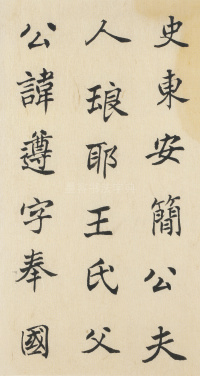 史東安簡公夫
人琅耶王氏父
公諱遵字奉國